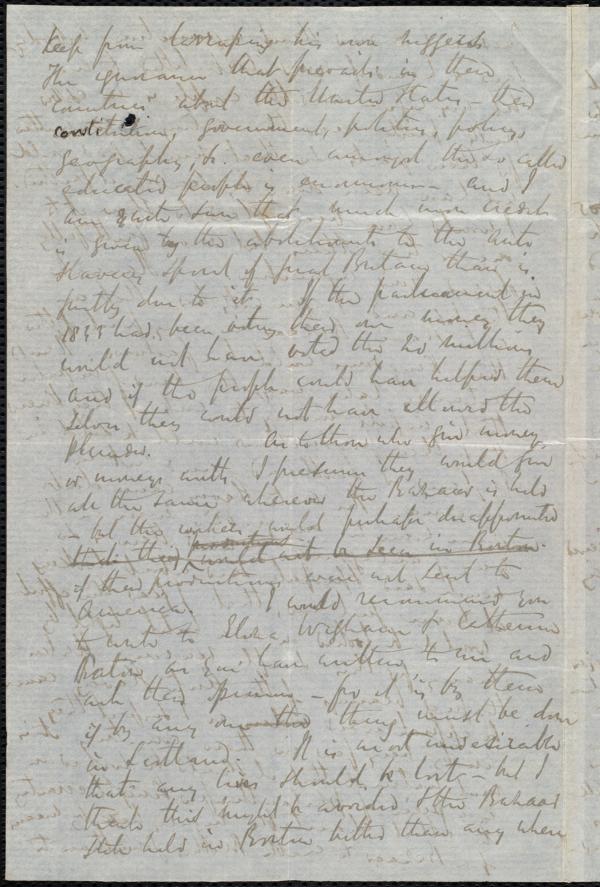 keep from    his own
The ignorance that prevails in these
countries about the United States – their
constitution, government, politics, policy,
geography, &c. even amongst the so called
educated people is enormous – and I
am quite sure that much more credit
is given by the abolitionists to the anti
slavery spirit of Great Britain than is
justly due to it. If the parliament in
1833 had been voting their own money they
would not have voted the 20 millions
and if the people could have helped them
selves they would not have allowed the
plunder. As to those who give money
or money's worth I presume they would give
all the same wherever the Bazaar is held
– but the    would perhaps be disappointed
think their productions would not be seen in Boston.
if their productions were not sent to
America. I would recommend you
to write to Eliza Wigham & Catherine
Paton as you have written to me and
ask their opinion – for it is by them
if by any one the thing must be done
in Scotland. It is most undesirable
that any    should be lost – but I
think this might be avoided & the Bazaar
still held in Boston better than any where